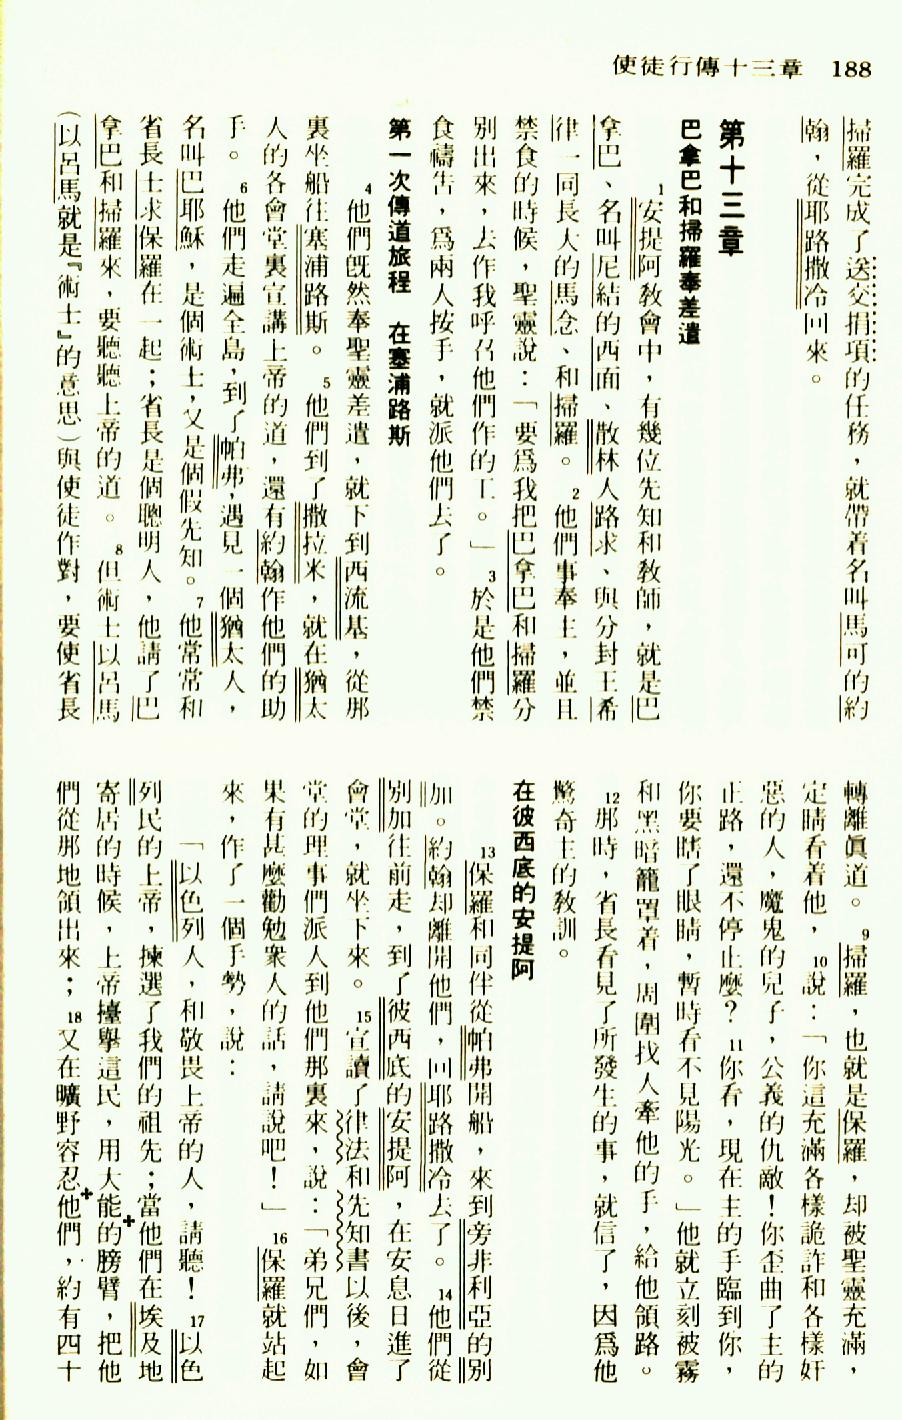 使徒行傳十三章 188
掃羅完成了送交捐項的任務，就帶着名叫馬可的約
翰，從耶路撒冷回來。
第十三章
巴拿巴和掃羅奉差遣
1安提阿教會中，有幾位先知和教師，就是巴
拿巴、名叫尼結的西面、散林人路求、與分封王希
律一同長大的馬念、和掃羅。2他們事奉主，並且
禁食的時候，聖靈說：「要爲我把巴拿巴和掃羅分
別出來，去作我呼召他們作的工。」3於是他們禁
食禱告，爲兩人按手，就派他們去了。
第一次傳道旅程 在塞浦路斯
4他們旣然奉聖靈差遣，就下到西流基，從那
裏坐船往塞浦路斯。5他們到了撒拉米，就在猶太
人的各會堂裏宣講上帝的道，還有約翰作他們的助
手。6他們走遍全島，到了帕弗，遇見一個猶太人，
名叫巴耶穌，是個術士，又是個假先知。7他常常和
省長士求保羅在一起；省長是個聰明人，他請了巴
拿巴和掃羅來，要聽聽上帝的道。8但術士以呂馬
（以呂馬就是『術士』的意思）與使徒作對，要使省長
轉離眞道。9掃羅，也就是保羅，却被聖靈充滿，
定睛看着他，10說：「你這充滿各樣詭詐和各樣奸
惡的人，魔鬼的兒子，公義的仇敵！你歪曲了主的
正路，還不停止麼？11你看，現在主的手臨到你，
你要瞎了眼睛，暫時看不見陽光。」他就立刻被霧
和黑暗籠罩着，周圍找人牽他的手，給他領路。
12那時，省長看見了所發生的事，就信了，因爲他
驚奇主的教訓。
在彼西底的安提阿
13保羅和同伴從帕弗開船，來到旁非利亞的別
加。約翰却離開他們，回耶路撒冷去了。14他們從
別加往前走，到了彼西底的安提阿，在安息日進了
會堂，就坐下來。15宣讀了律法和先知書以後，會
堂的理事們派人到他們那裏來，說：「弟兄們，如
果有甚麼勸勉衆人的話，請說吧！」16保羅就站起
來，作了一個手勢，說：
「以色列人，和敬畏上帝的人，請聽！17以色
列民的上帝，揀選了我們的祖先；當他們在埃及地
寄居的時候，上帝擡舉這民，用大能的膀臂，把他
們從那地領出來；18又在曠野容忍他們，約有四十